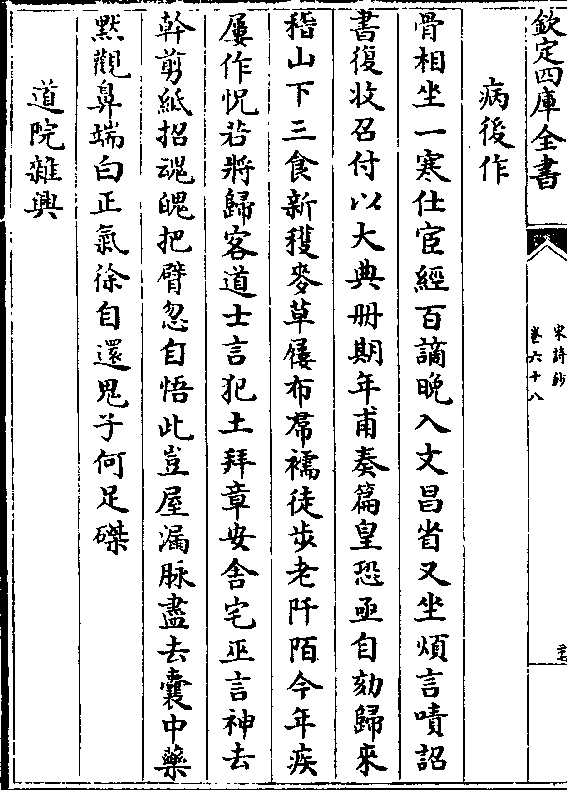 欽定四庫全書
宋詩鈔
卷六十八
病後作
骨相坐一寒仕宦經百謫晚入文昌省又坐煩言嘖詔
書復收召付以大典册期年甫奏篇皇恐亟自劾歸來
稽山下三食新穫麥草屨布帬襦徒步老阡陌今年疾
屢作怳若將歸客道士言犯土拜章安舍宅巫言神去
幹剪紙招魂魄把臂忽自悟此豈屋漏脉盡去囊中藥
黙觀鼻端白正氣徐自還鬼子何足磔
道院雜興